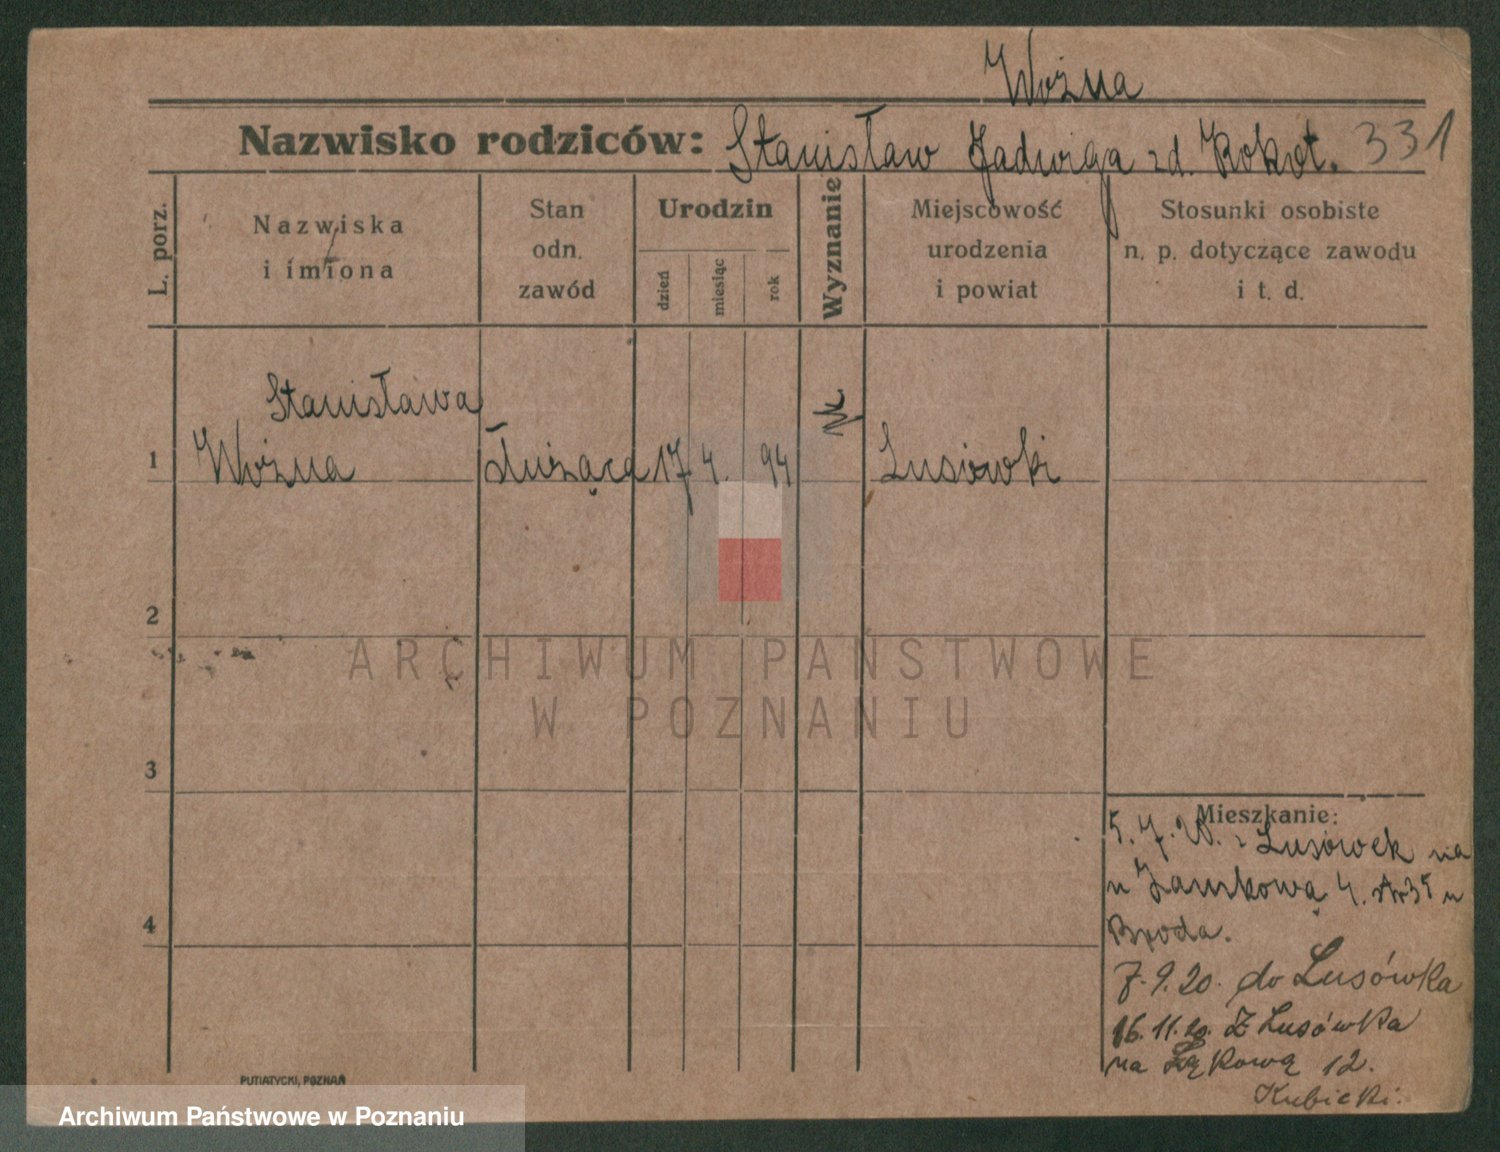 Woźna
Nazwisko rodziców: Stanisław Jadwiga zd. Kokot. 331
L. porz.
Nazwiska
i imiona
Stan
odn.
zawód
Urodzin
dzień
miesiąc
rok
Wyznanie
Miejscowość
urodzenia
i powiat
Stosunki osobiste
n. p. dotyczące zawodu
i t. d.
Stanisława
1 Woźna służąca 17 4. 94 rk Lusówki
2
3
4
ARCHIWUM PAŃSTWOWE
W POZNANIU
Mieszkanie:
5. 7. 20. z Lusówek na
Zamkową 4.
Broda.
7. 9. 20. do Lusówka
16. 11. 20. Z Lusówka
na Łąkową 12.
Kubicki.
PUTIATYCKI, POZNAŃ
Archiwum Państwowe w Poznaniu